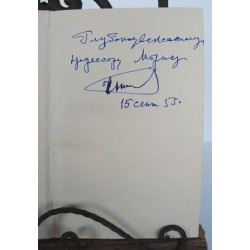 Глубокоуважаемому
профессору Морису
15 сент 55г.